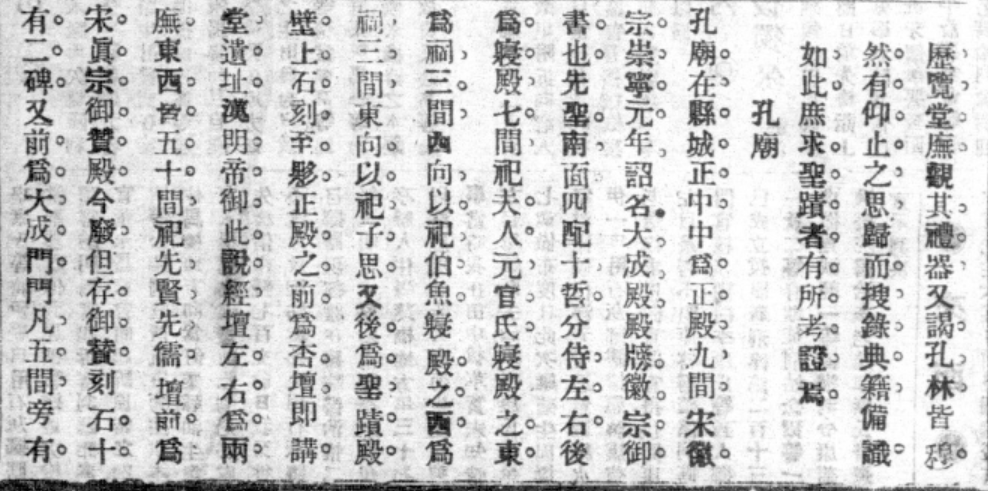 歷覽堂廡觀其禮器又謁孔林皆穆
然有仰止之思歸而搜錄典籍備識
如此庶求聖蹟者有所考證焉
孔廟
孔廟在縣城正中中爲正殿九間宋徽
宗崇寧元年詔名大成殿殿牓徽宗御
書也先聖南面四配十哲分侍左右後
爲寢殿七間祀夫人亓官氏寢殿之東
爲祠三間西向以祀伯魚寢殿之西爲
祠三間東向以祀子思又後爲聖蹟殿
壁上石刻至夥正殿之前爲杏壇即講
堂遺址漢明帝御此說經壇左右爲兩
廡東西各五十間祀先賢先儒壇前爲
宋眞宗御贊殿今廢但存御贊刻石十
有二碑又前爲大成門門凡五間旁有